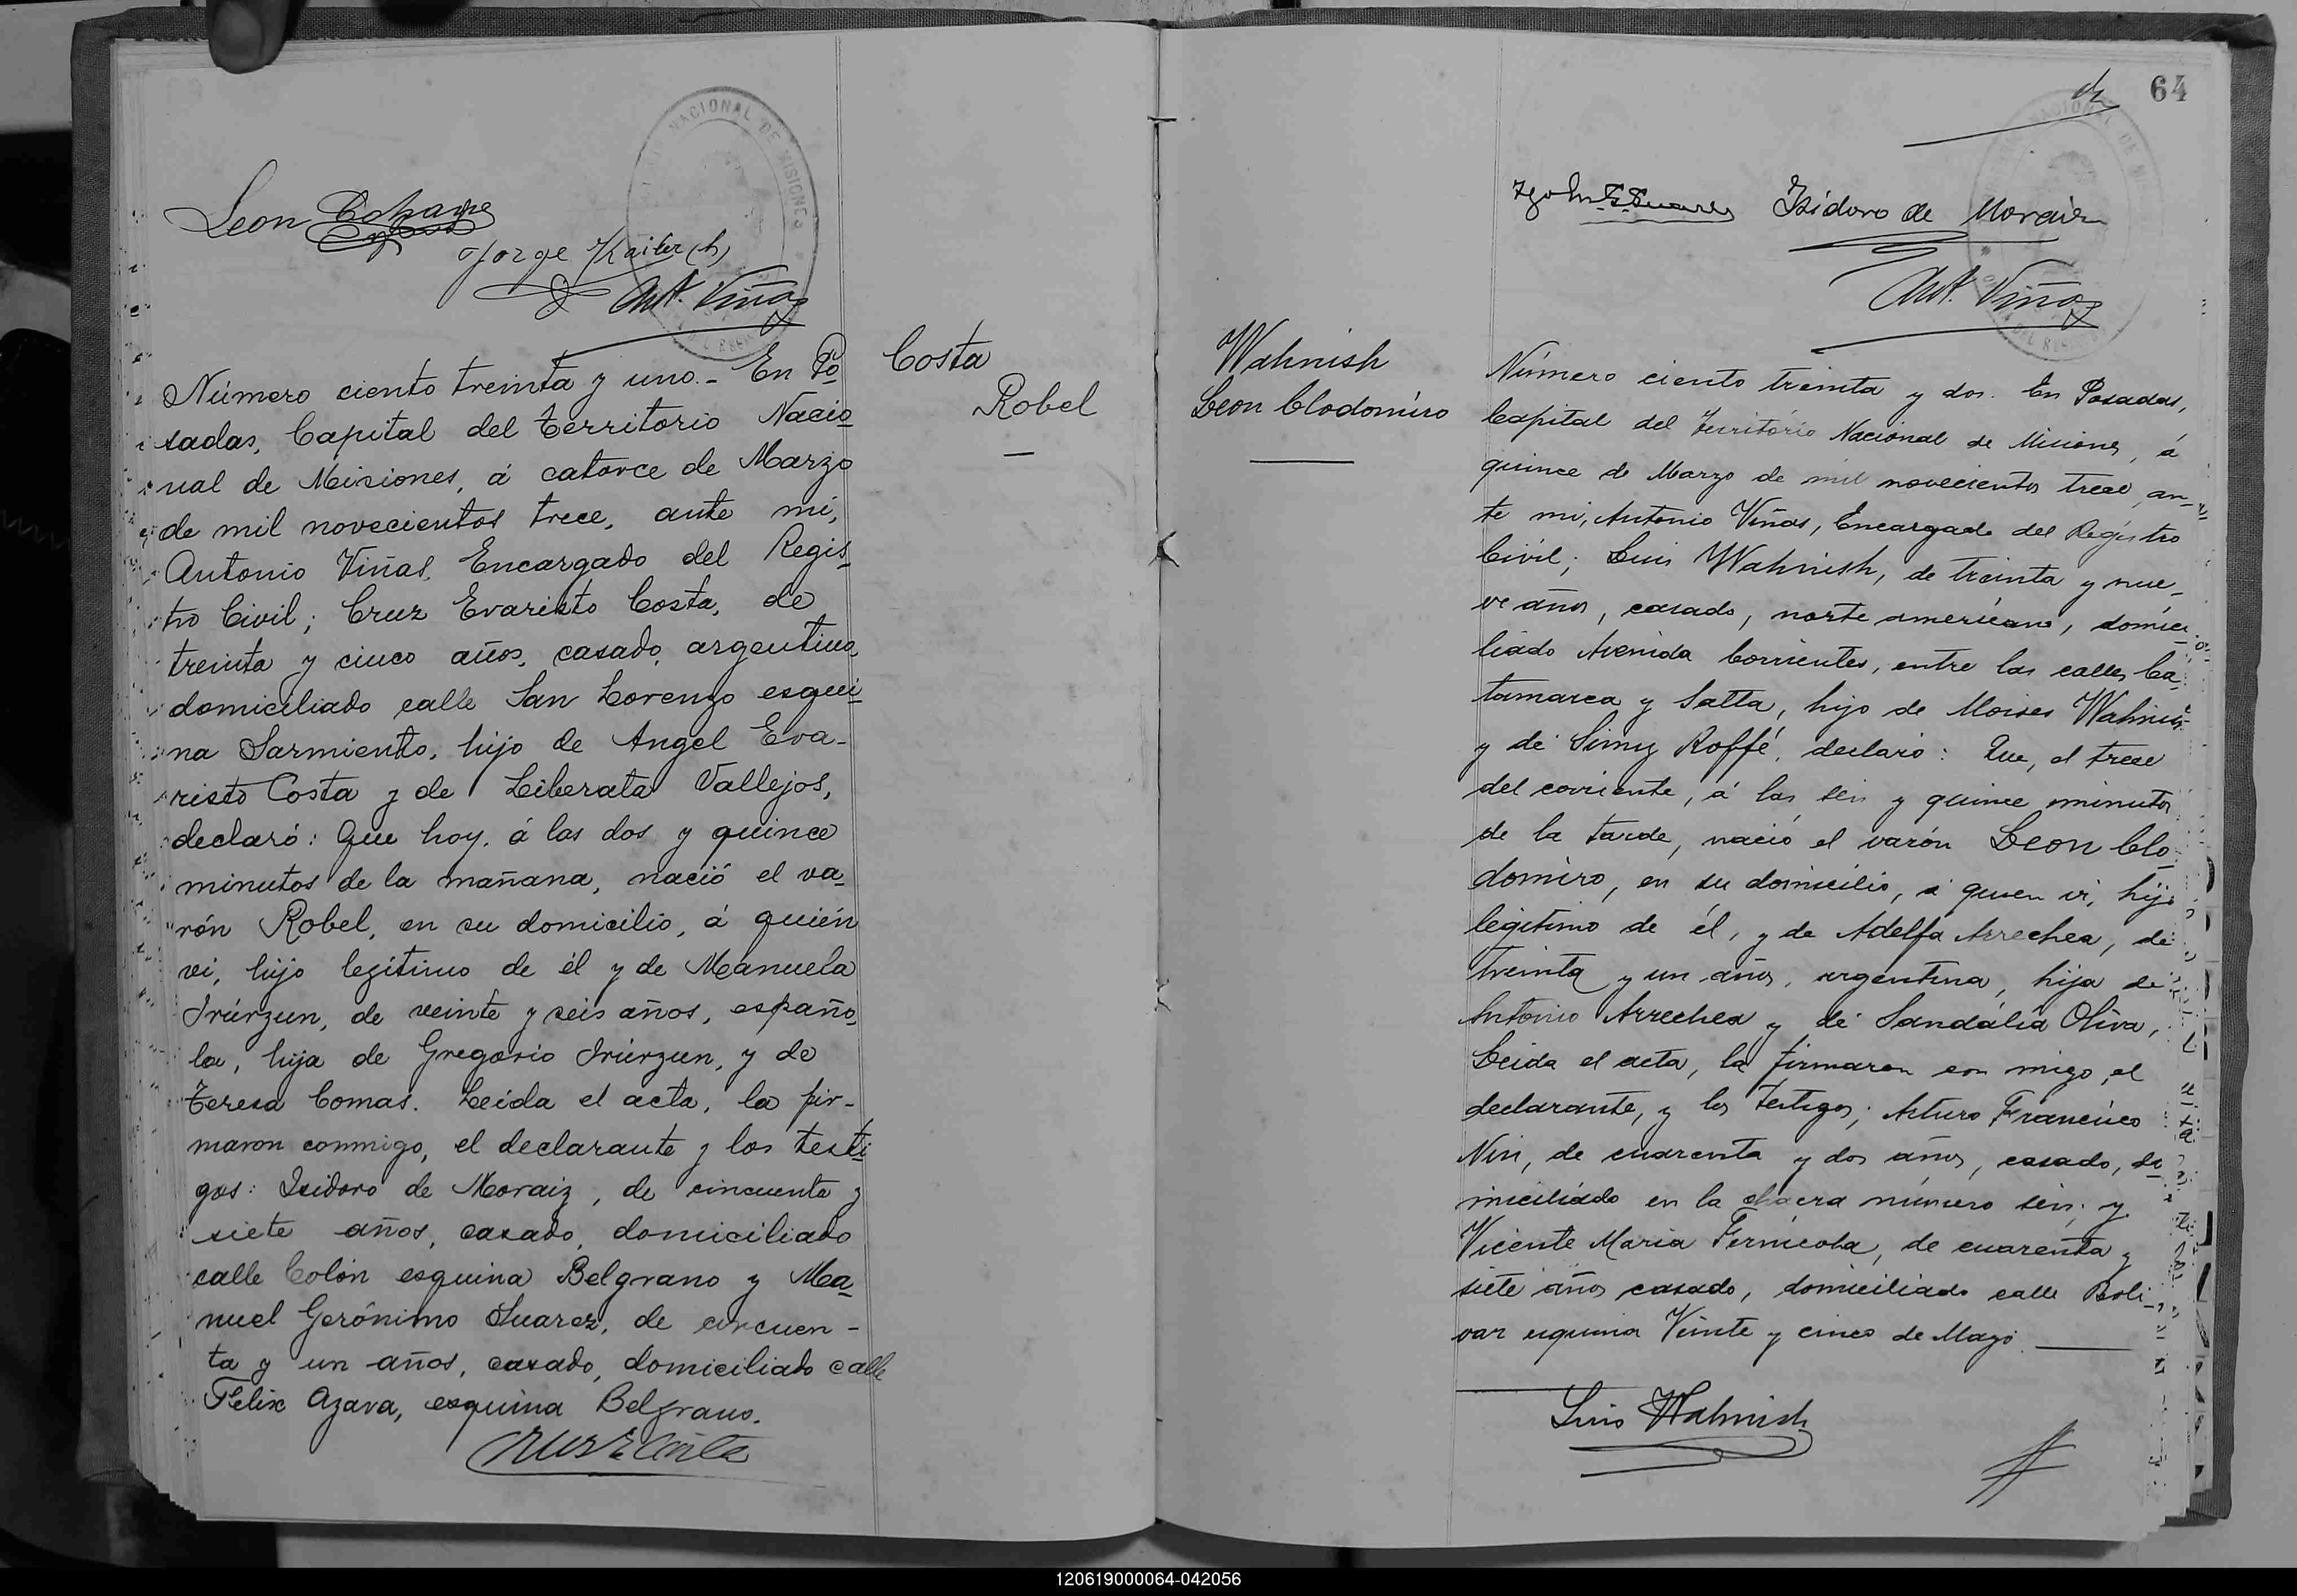 Leon
Jorge Kaiser (h)
Ant. Viñas
Costa
Robel
Número ciento treinta y uno.- En Po-
sadas, Capital del Territorio Nacio-
nal de Misiones, á catorce de Marzo
de mil novecientos trece, ante mi,
Antonio Viñas, Encargado del Regis-
tro Civil; Cruz Evaristo Costa, de
treinta y cinco años, casado, argentino,
domiciliado calle San Lorenzo esqui-
na Sarmiento, hijo de Angel Eva-
risto Costa y de Liberata Vallejos,
declaró: Que hoy, á las dos y quince
minutos de la mañana, nació el va-
rón Robel, en su domicilio, á quién
vi, hijo legítimo de él y de Manuela
Irúrzun, de veinte y seis años, españo-
la, hija de Gregorio Irúrzun, y de
Teresa Comas. Leída el acta, la fir-
maron conmigo, el declarante y los testi-
gos: Isidoro de Moraiz, de cincuenta y
siete años, casado, domiciliado
calle Colón esquina Belgrano y Ma-
nuel Gerónimo Suarez, de cincuen-
ta y un años, casado, domiciliado calle
Felix Azara, esquina Belgrano.
64
Isidoro de Moraiz
Ant. Viñas
Wahnish
Leon Clodomiro
Número ciento treinta y dos. En Posadas,
Capital del Territorio Nacional de Misiones, á
quince de Marzo de mil novecientos trece, an-
te mi, Antonio Viñas, Encargado del Registro
Civil; Luis Wahnish, de treinta y nue-
ve años, casado, norte americano, domici-
liado Avenida Corrientes, entre las calles Ca-
tamarca y Salta, hijo de Moises Wahnish
y de Simy Roffé, declaró: Que, el trece
del corriente, á las seis y quince minutos
de la tarde, nació el varón Leon Clo-
domiro, en su domicilio, á quien vi, hijo
legítimo de él, y de Adelfa Arrechea, de
treinta y un años, argentina, hija de
Antonio Arrechea y de Sandália Oliva,
Leida el acta, la firmaron con migo, el
declarante, y los testigos; Arturo Francisco
Nin, de cuarenta y dos años, casado, do-
miciliado en la chacra número seis; y
Vicente Maria Fernicola, de cuarenta y
siete años casado, domiciliado calle Boli-
var esquina Veinte y cinco de Mayo.
Luis Wahnish
120619000064-042056